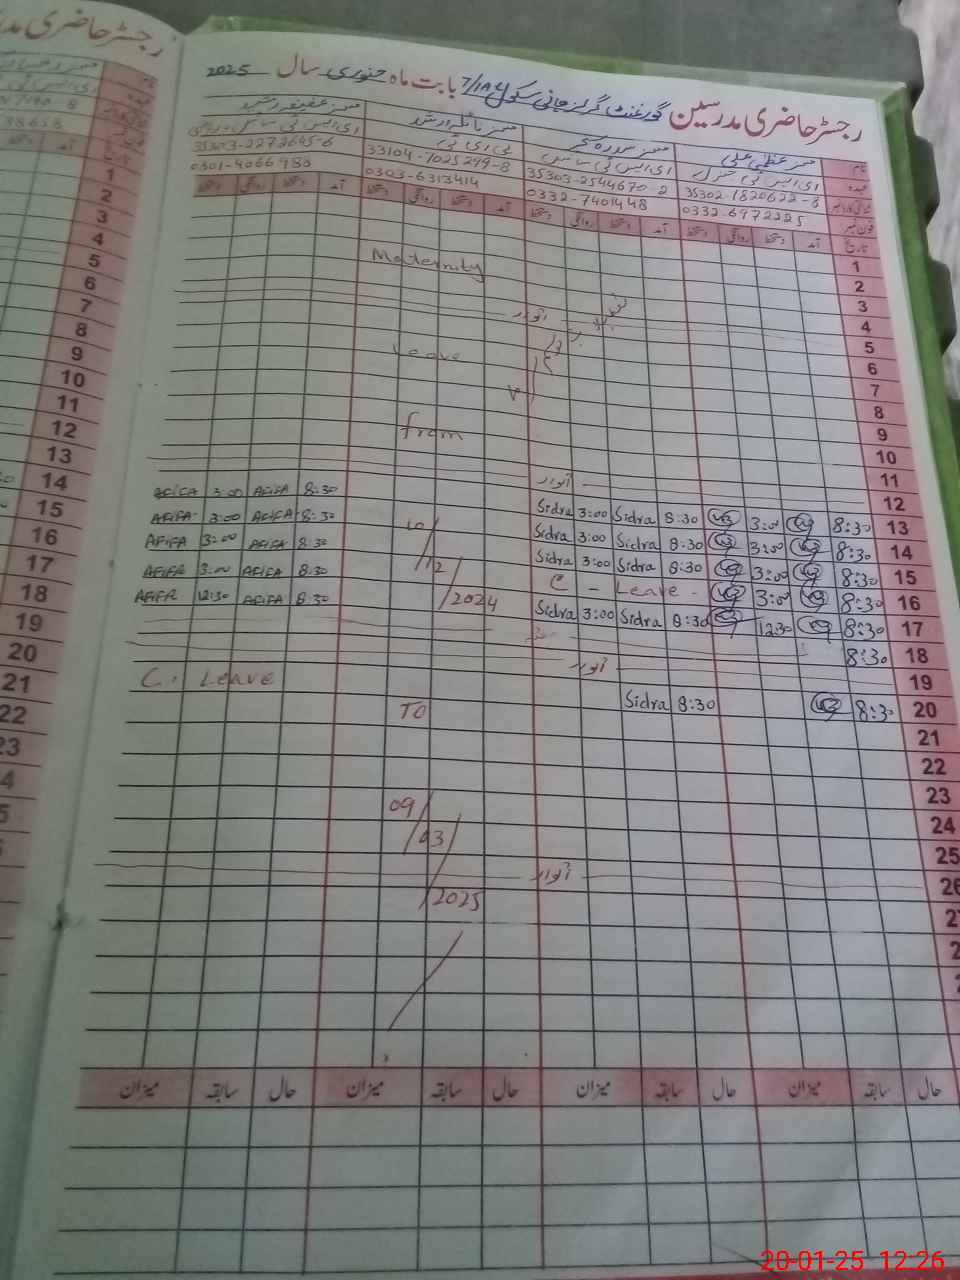 رجسٹر حاضری مدرسین گورنمنٹ گرلز ہائی سکول 7/1AL بابت ماہ جنوری سال 2025
نام مسز عظمیٰ علی مسز سدرہ سحر مسز نائلہ ارشد مسز عفیفہ رشید
عہدہ ای ایس ٹی جنرل ای ایس ٹی سائنس پی ای ٹی ای ایس ٹی سائنس
35302-1820622-8 35303-2544670-2 33104-7025249-8 35303-2272645-6
فون نمبر 0332-6972225 0332-7401448 0303-6313414 0301-4066983
تاریخ آمد دستخط روانگی دستخط آمد دستخط روانگی دستخط آمد دستخط روانگی دستخط آمد دستخط روانگی دستخط
1
2
3 Maternity
4
5 اتوار
6
7 Leave
8
9
10 from
11
12 اتوار
13 8:30 3:00 8:30 Sidra 3:00 Sidra 8:30 AFIFA 3:00 AFIFA
14 8:30 3:00 8:30 Sidra 3:00 Sidra 10/12/2024 8:30 AFIFA 3:00 AFIFA
15 8:30 3:00 8:30 Sidra 3:00 Sidra 8:30 AFIFA 3:00 AFIFA
16 8:30 3:00 C - Leave - 8:30 AFIFA 3:00 AFIFA
17 8:30 12:30 8:30 Sidra 3:00 Sidra 8:30 AFIFA 12:30 AFIFA
18 8:30
19 اتوار
20 8:30 8:30 Sidra TO C. Leave
21
22
23
24 09/03/2025
25
26 اتوار
حال سابقہ میزان حال سابقہ میزان حال سابقہ میزان حال سابقہ میزان
رجسٹر حاضری
نام
عہدہ
1
2
3
4
5
6
7
8
9
10
11
12
13
14
15
16
17
18
19
20
21
22
23
20-01-25 12:26